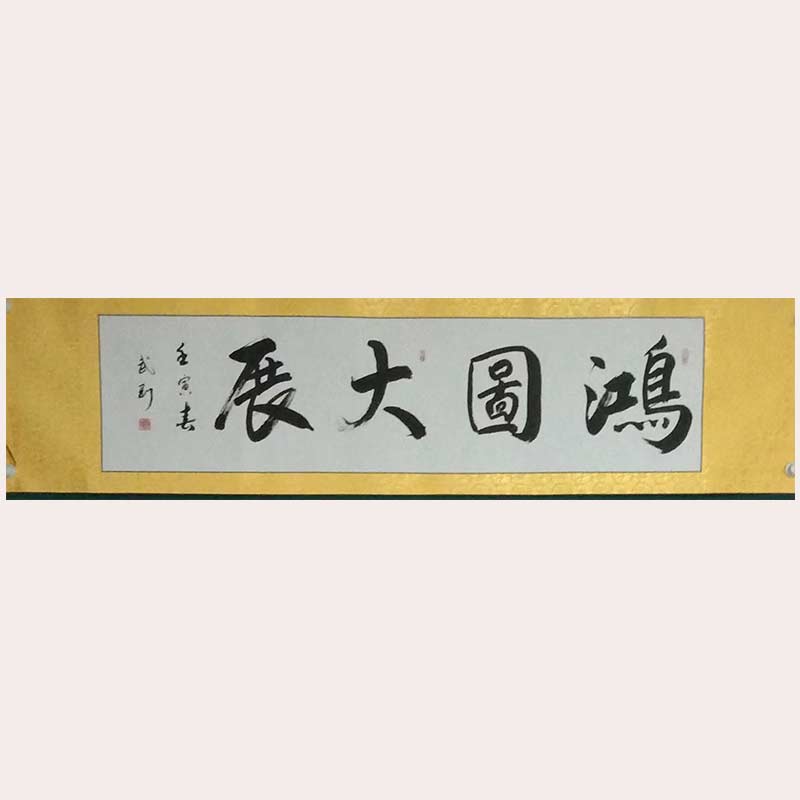 鴻圖大展
壬寅春
武